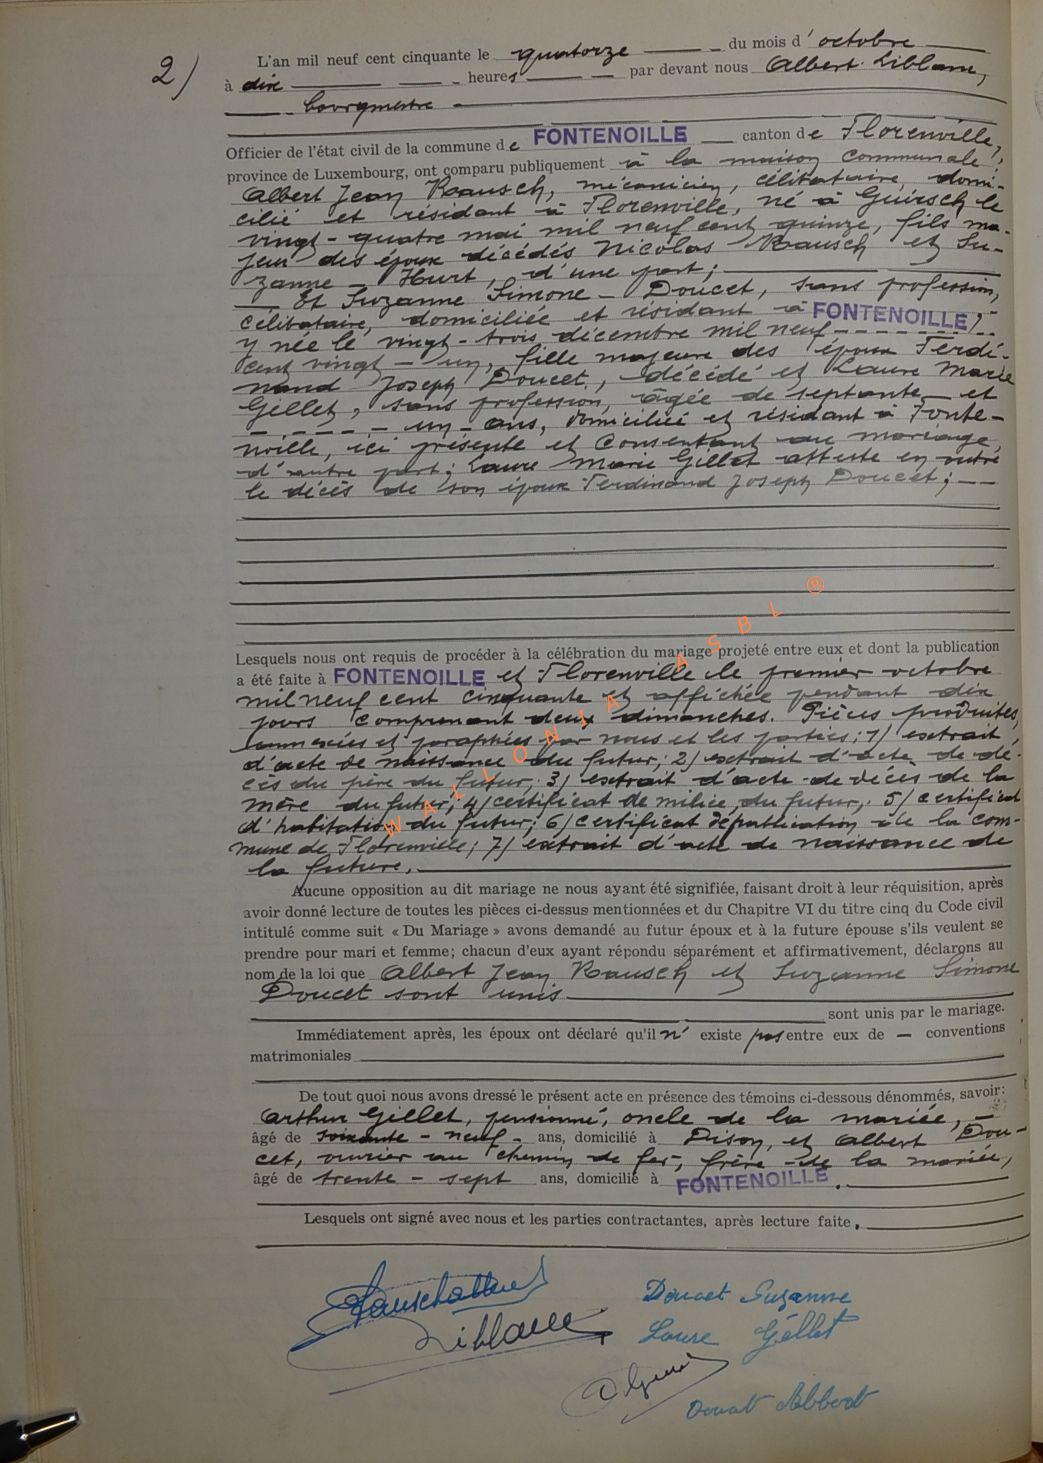 2)
L'an mil neuf cent cinquante le quatorze du mois d'octobre
à dix heures par devant nous Albert Liblanc,
bourgmestre
Officier de l'état civil de la commune de FONTENOILLE canton de Florenville,
province de Luxembourg, ont comparu publiquement à la maison communale
Albert Jean Rausch, mécanicien, célibataire, domi-
cilié et résidant à Florenville, né à Guirsch le
vingt-quatre mai mil neuf cent quinze, fils ma-
jeur des époux décédés Nicolas Rausch et Su-
zanne Hurt, d'une part;
Et Suzanne Simone Doucet, sans profession,
célibataire, domiciliée et résidant à FONTENOILLE,
y née le vingt-trois décembre mil neuf
cent vingt-un, fille majeure des époux Ferdi-
nand Joseph Doucet, décédé et Laure Marie
Gillet, sans profession, âgée de septante et
un ans, domiciliée et résidant à Fonte-
noille, ici présente et consentant au mariage,
d'autre part; Laure Marie Gillet atteste en outre
le décès de son époux Ferdinand Joseph Doucet;
Lesquels nous ont requis de procéder à la célébration du mariage projeté entre eux et dont la publication
a été faite à FONTENOILLE et Florenville le premier octobre
mil neuf cent cinquante et affichée pendant dix
jours comprenant deux dimanches. Pièces produites,
annexées et paraphées par nous et les parties: 1) extrait
d'acte de naissance du futur; 2) extrait d'acte de dé-
cès du père du futur; 3) extrait d'acte de décès de la
mère du futur; 4) certificat de milice du futur; 5) certificat
d'habitation du futur; 6) certificat de publication de la com-
mune de Florenville; 7) extrait d'acte de naissance de
la future.
Aucune opposition au dit mariage ne nous ayant été signifiée, faisant droit à leur réquisition, après
avoir donné lecture de toutes les pièces ci-dessus mentionnées et du Chapitre VI du titre cinq du Code civil
intitulé comme suit « Du Mariage » avons demandé au futur époux et à la future épouse s'ils veulent se
prendre pour mari et femme; chacun d'eux ayant répondu séparément et affirmativement, déclarons au
nom de la loi que Albert Jean Rausch et Suzanne Simone
Doucet sont unis
sont unis par le mariage.
Immédiatement après, les époux ont déclaré qu'il n'existe pas entre eux de — conventions
matrimoniales
De tout quoi nous avons dressé le présent acte en présence des témoins ci-dessous dénommés, savoir:
Arthur Gillet, pensionné, oncle de la mariée,
âgé de soixante-neuf ans, domicilié à Dison, et Albert Dou-
cet, ouvrier au chemin de fer, frère de la mariée,
âgé de trente-sept ans, domicilié à FONTENOILLE.
Lesquels ont signé avec nous et les parties contractantes, après lecture faite.
Doucet Suzanne
Liblanc
Laure Gillet
WALLONIA ASBL ®